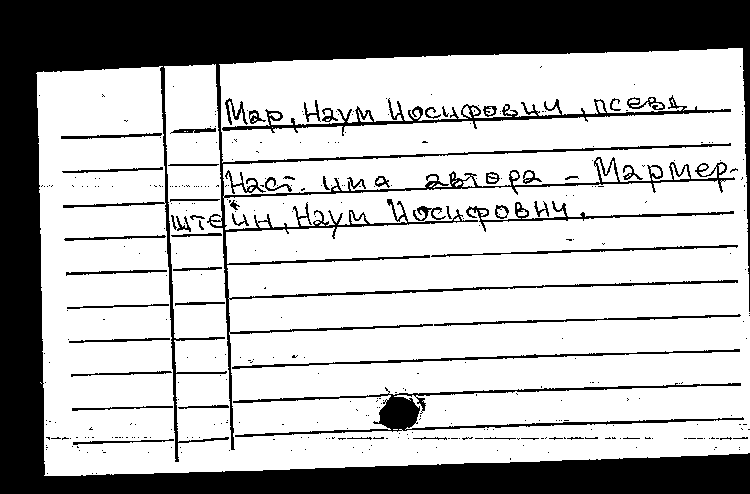 Мар, Наум Иосифович, псевд.
Наст. имя автора – Мармер-
штейн, Наум Иосифович.